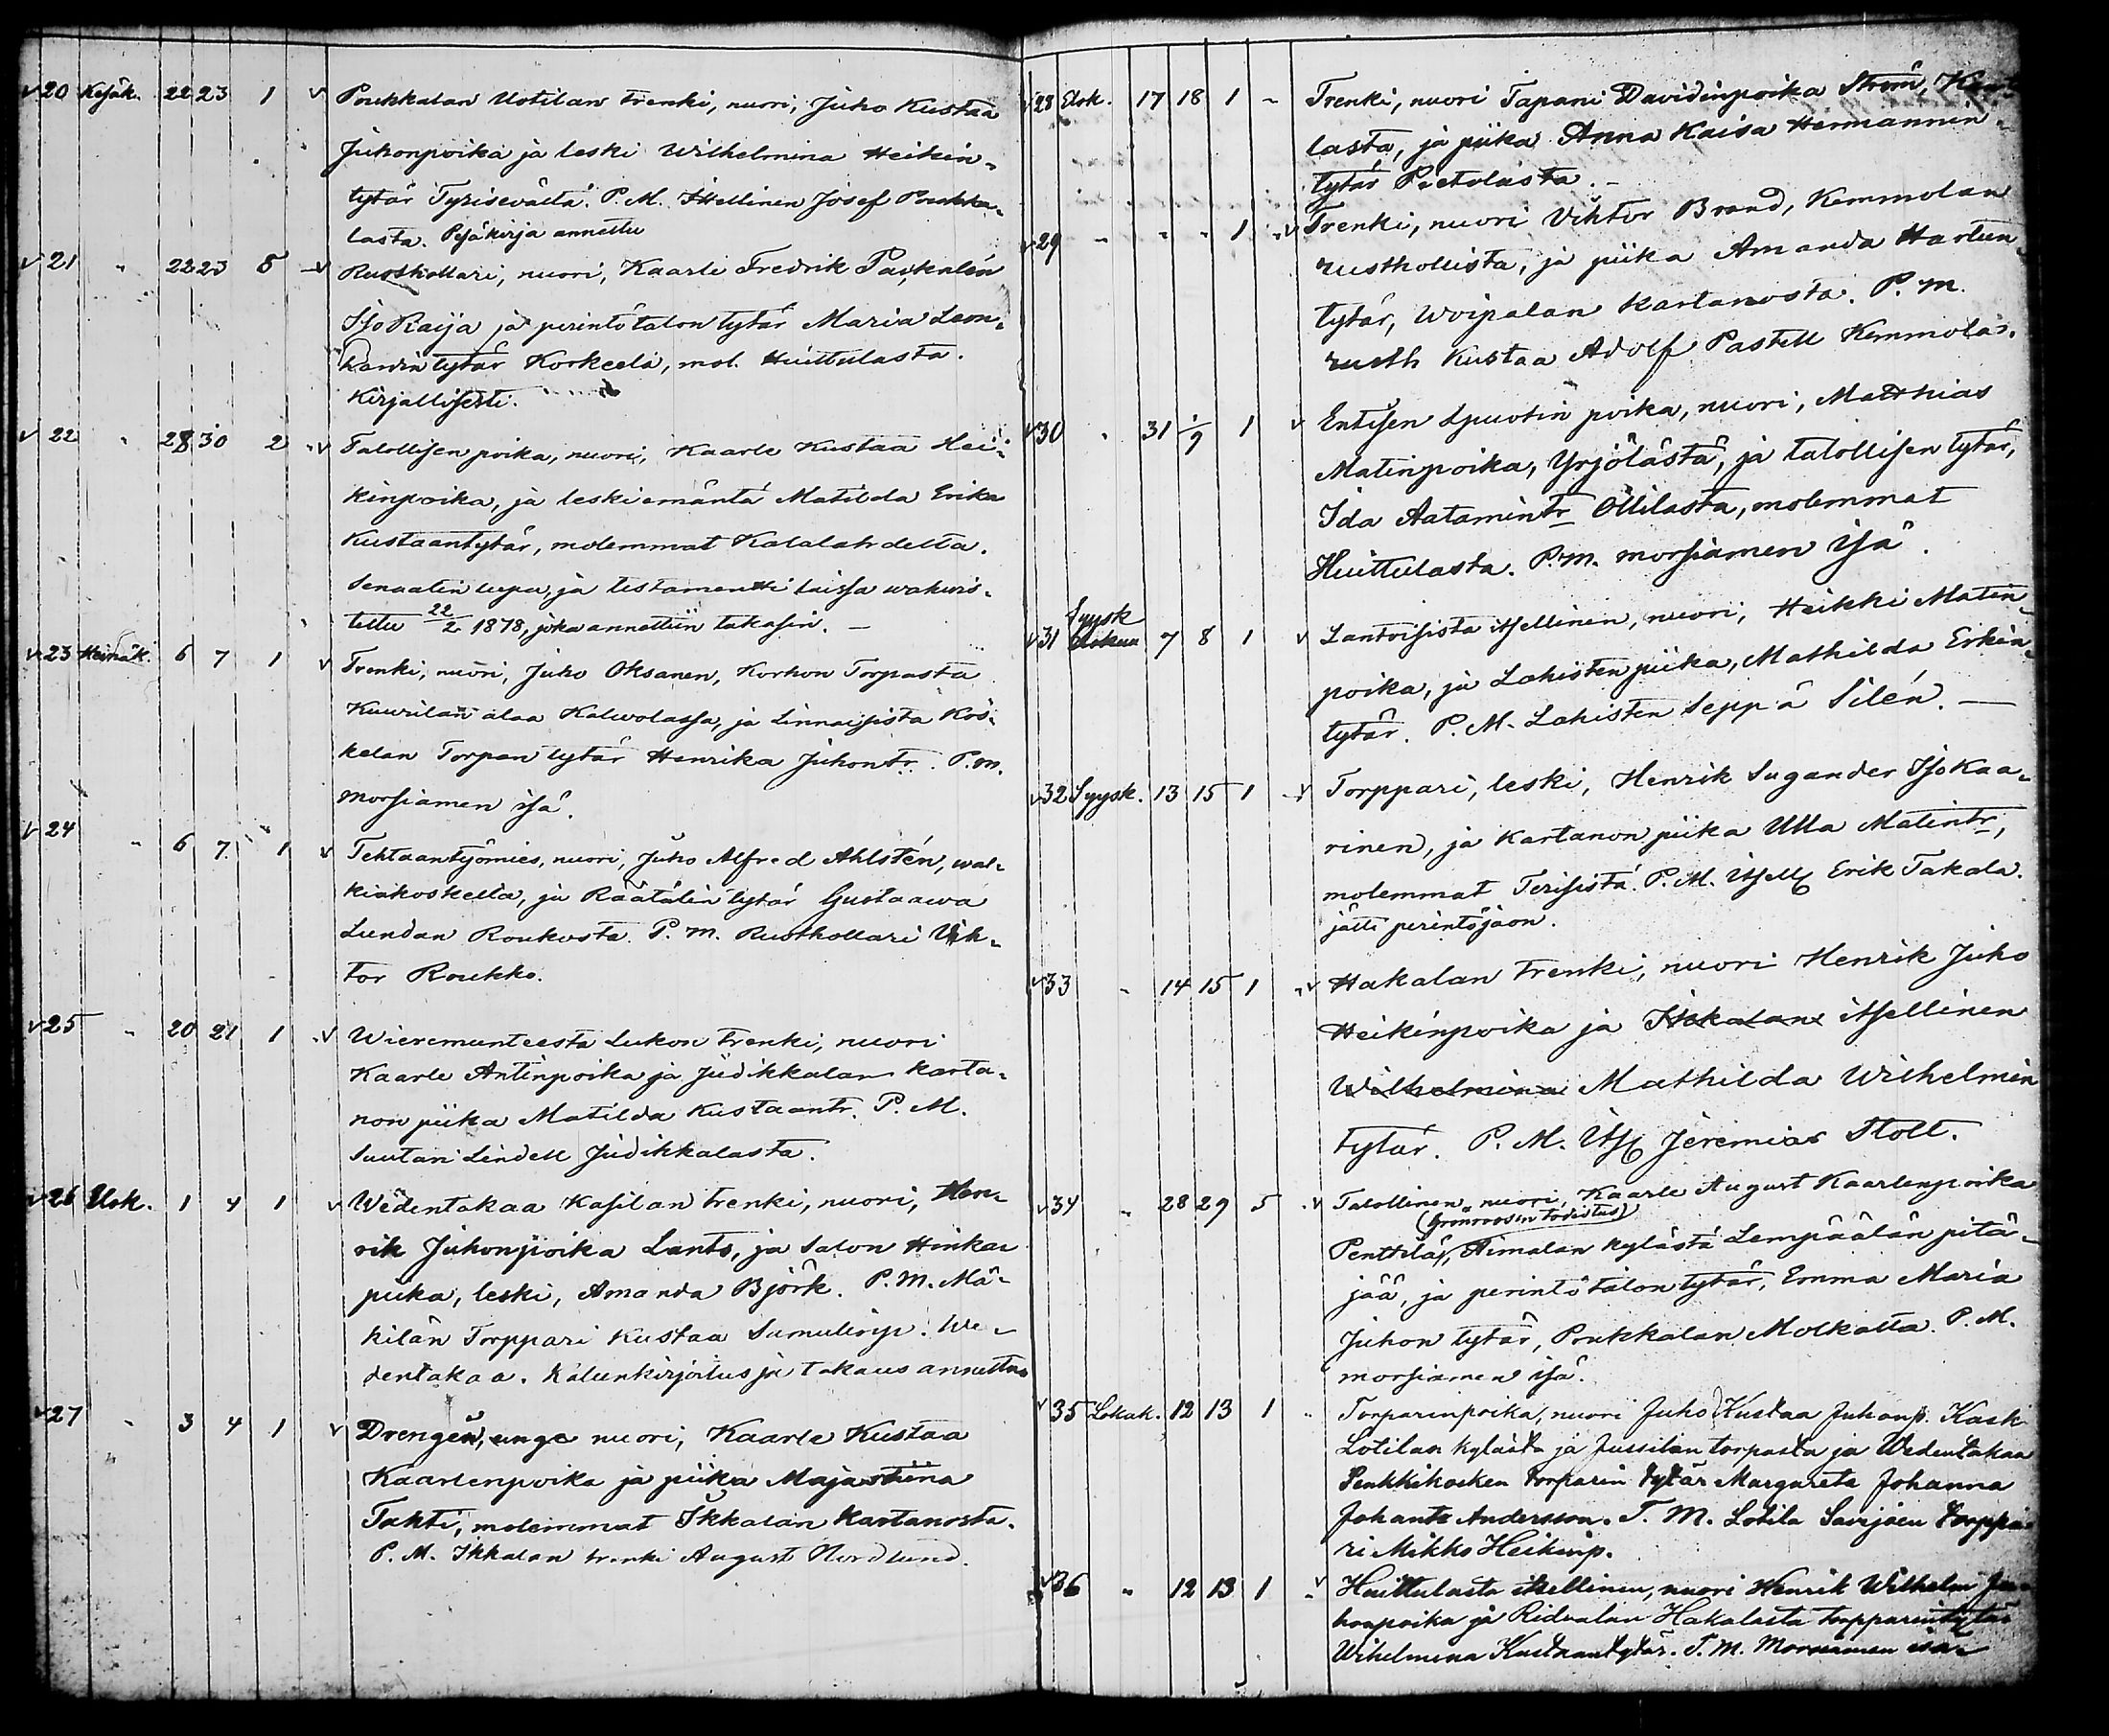 20 Kesäk. 22 23 1 Poukkalan Uotilan trenki, nuori, Juho Kustaa
Juhonpoika ja leski Wilhelmina Heikin-
tytär Tyrisevältä. P. M. Itsellinen Josef Poukka-
lasta. Pesäkirja annettu
21 " 22 23 5 Rusthollari, nuori, Kaarle Fredrik
Iso Raija ja perintötalon tytär Maria Leon-
hardin tytär Korkeela, mol. Huittulasta.
Kirjallisesti.
22 " 28 30 2 Talollisen poika, nuori, Kaarle Kustaa Hei-
kinpoika, ja leskiemäntä Matilda Erika
Kustaantytär, molemmat Kalalahdelta.
Senaatin lupa, ja testamentti laissa wahwis-
tettu 22/2 1878, joka annettiin takasin. —
23 Heinäk. 6 7 1 Trenki, nuori, Juho Oksanen, Korhon Torpasta
Kuurilan alaa Kalwolassa, ja Linnaisista Kos-
kelan Torpan tytär Henrika Juhontr. P. m.
morsiamen isä.
24 " 6 7 1 Tehtaantyömies, nuori, Juho Alfred Ahlstén, wal-
kiakoskella, ja Räätälin tytär Gustaawa
Lundan Roukosta. P. M. Rusthollari Vih-
tor Roukko.
25 " 20 21 1 Wieremunteesta Lukon trenki, nuori
Kaarle Antinpoika ja Judikkalan karta-
non piika Matilda Kustaantr. P. M.
Suutari Lindell Judikkalasta.
26 Elok. 1 4 1 Wedentakaa Kasilan trenki, nuori, Hen-
rik Juhonpoika Lants, ja Salon Hinkan
piika, leski, Amanda Björk. P. M. Mä-
kilän Torppari Kustaa Samulinp. We-
dentakaa. Kalunkirjoitus ja takaus annettu
27 " 3 4 1 Drengen, unge nuori, Kaarle Kustaa
Kaarlenpoika ja piika Maja Stiina
Tahti, molemmat Ikkalan Kartanosta.
P. M. Ikkalan trenki August Nordlund.
28 Elok. 17 18 1 Trenki, nuori Tapani Davidinpoika Ström,
lasta, ja piika Anna Kaisa Hermannin-
tytär Pietolasta. –
29 " " " 1 Trenki, nuori Viktor Brand, Kemmolan
rusthollista, ja piika Amanda Hartun-
tytär, Woipalan Kartanosta. P. m.
rusth Kustaa Adolf Pastell Kemmola.
30 " 31 1/9 1 Entisen Spuotin poika, nuori, Matthias
Matinpoika, Yrjölästä, ja talollisen tytär,
Ida Aatamintr Ollilasta, molemmat
Huittulasta. P. m. morsiamen isä.
Syysk
31 Elokuu 7 8 1 Lantoisista itsellinen, nuori, Heikki Matin-
poika, ja Lahisten piika, Mathilda Erkin-
tytär. P. M. Lahisten Seppä Silén. —
32 Syysk. 13 15 1 Torppari, leski, Henrik Sugander IsoKaa-
rinen, ja Kartanon piika Ulla Matintr,
molemmat Terisistä. P. M. Itsell Erik Takala.
jätti perintöjaon.
33 " 14 15 1 Hakalan trenki, nuori Henrik Juho
Heikinpoika ja Ikkalan itsellinen
Wilhelmina Mathilda Wilhelmin
tytär. P. M. Its Jeremias Stolt.
34 " 28 29 5 Talollinen, nuori, Kaarle August Kaarlenpoika
(Grönroosin todistus)
Penttilä, Aimalan kylästä Lempäälän pitä-
jää, ja perintö talon tytär, Emma Maria
Juhon tytär, Poukkalan Molkalta. P. M.
morsiamen isä.
35 Lokak. 12 13 1 Torparinpoika, nuori Juho Kustaa Juhanp. Kask
Lotilan kylästä ja Jussilan torpasta ja Wedentakaa
Penkkikosken torparin tytär Margareta Johanna
Johantr Andersson. T. M. Lotila Savijoen torppa-
ri Mikko Heikinp.
36 " 12 13 1 Huittulasta itsellinen, nuori Henrik Wilhelm Ju-
honpoika ja Ridvalan Hakalasta torpparintytär
Wilhelmina Kustaantytär. T. M. Morsiamen isä